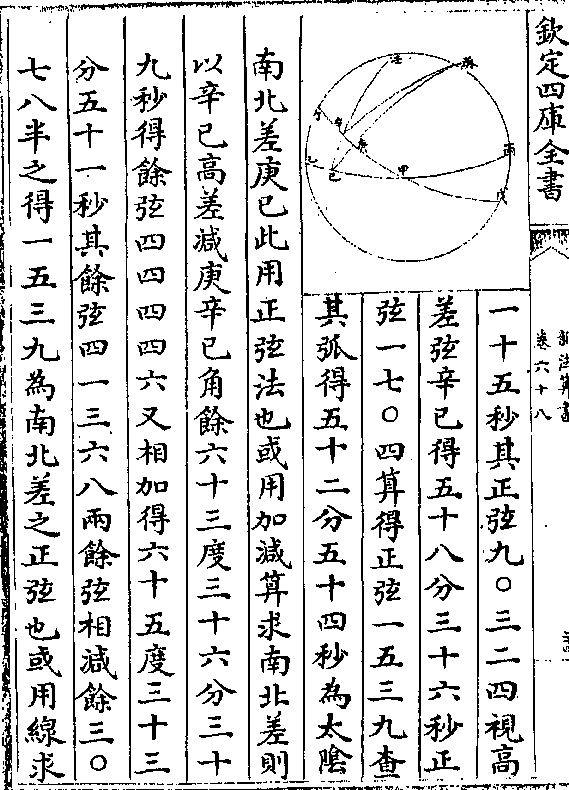 欽定四庫全書
卷六十八
一十五秒其正弦九〇三二四視高
差弦辛巳得五十八分三十六秒正
弦一七〇四算得正弦一五三九查
其弧得五十二分五十四秒為太陰
南北差庚巳此用正弦法也或用加減算求南北差則
以辛巳高差減庚辛巳角餘六十三度三十六分三十
九秒得餘弦四四四四六又相加得六十五度三十三
分五十一秒其餘弦四一三六八兩餘弦相減餘三〇
七八半之得一五三九為南北差之正弦也或用線求
壬
丙
甲
戊
庚
辛
巳